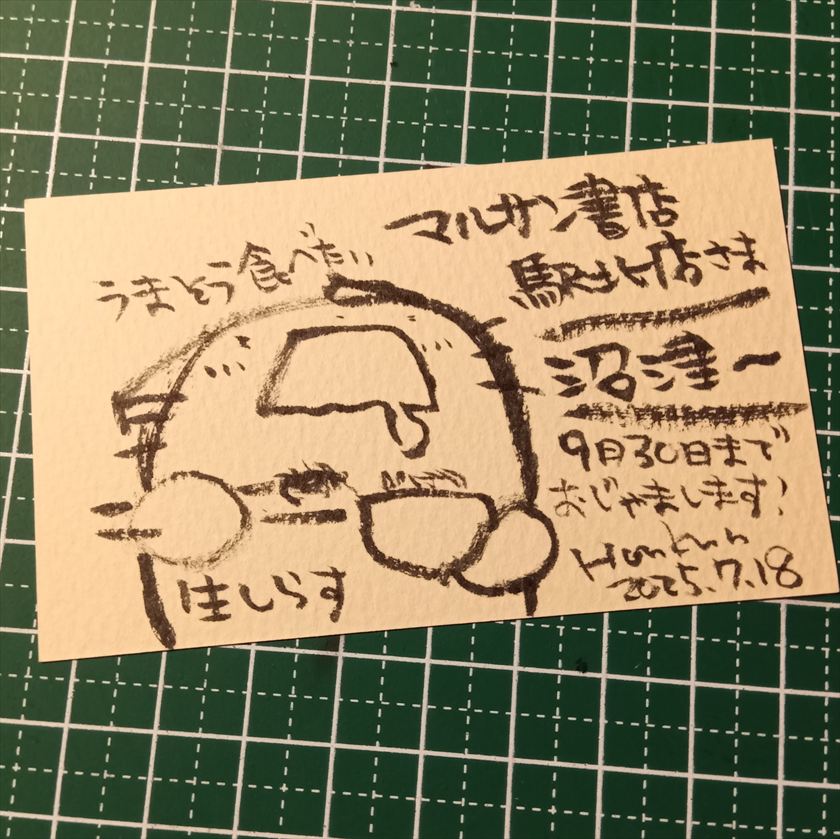 うまどう食べたい
マルサン書店
駅北店さま
沼津〜
9月30日まで
おじゃまします!
2025.7.18
生しらす